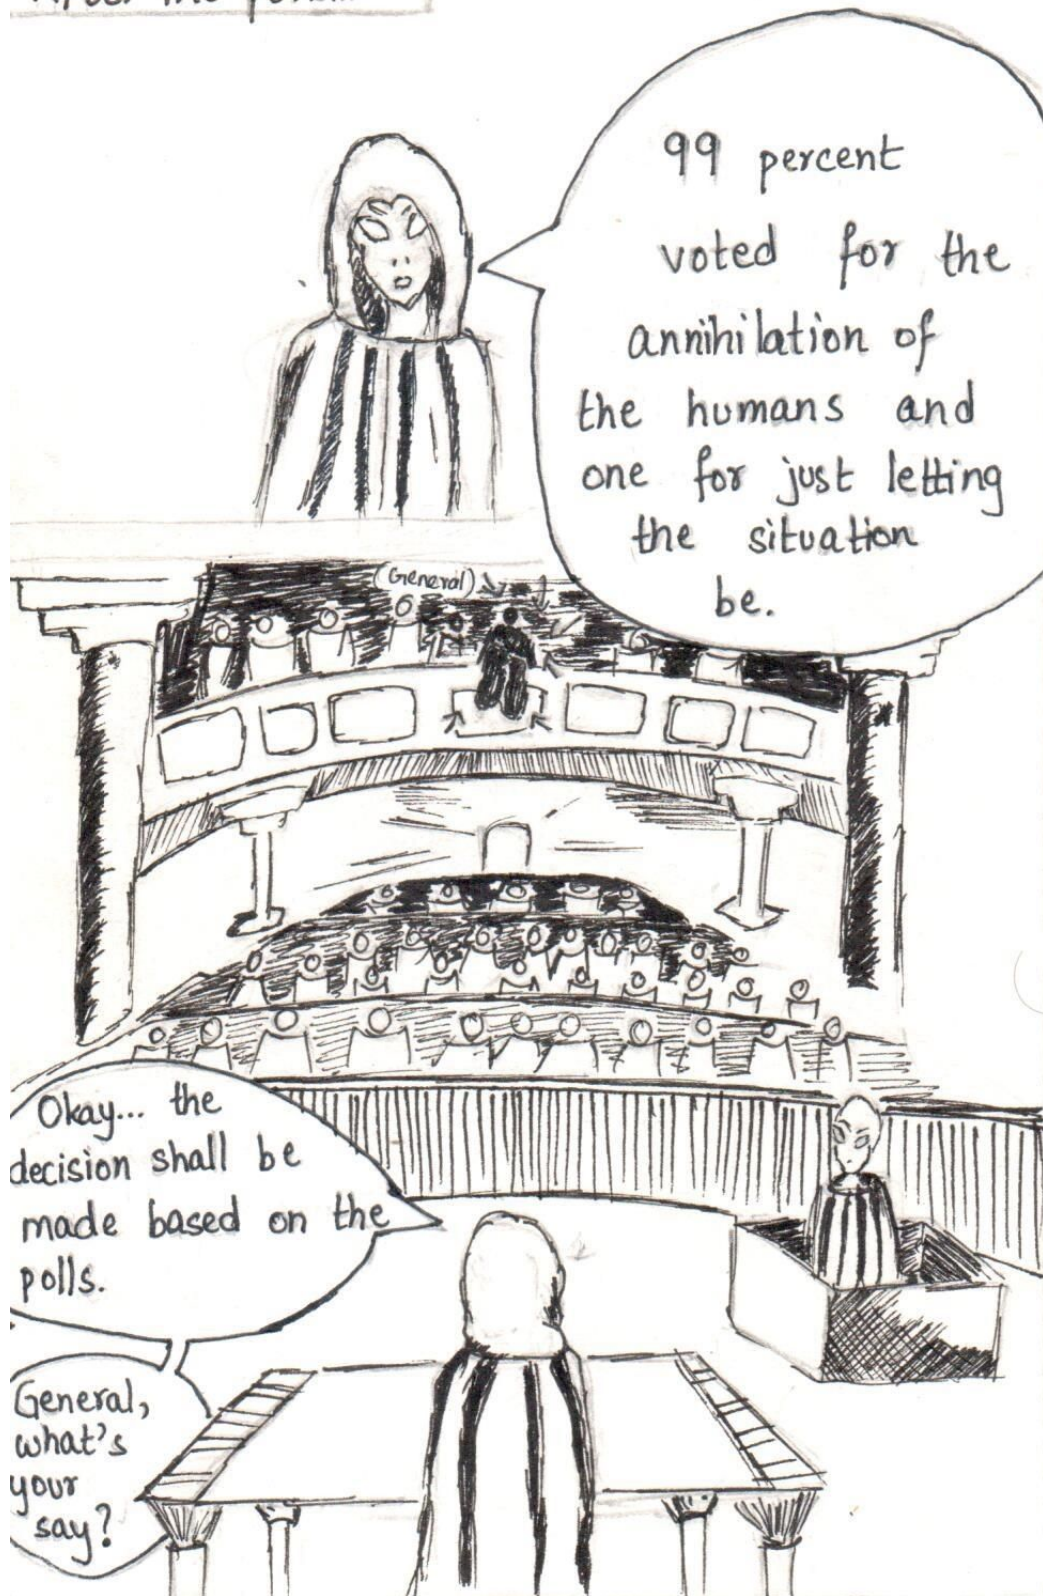 After the
99 percent
voted for the
annihilation of
the humans and
one for just letting
the situation
be.
(General)
Okay... the
decision shall be
made based on the
polls.
General,
what's
your
say?